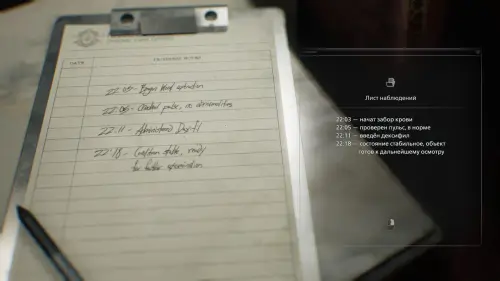 22:03 - Began blood extraction
22:05 - Checked pulse, no abnormalities
22:11 - Administered
22:18 - Condition stable, ready
for further examination
Лист наблюдений
22:03 — начат забор крови
22:05 — проверен пульс, в норме
22:11 — введён дексифил
22:18 — состояние стабильное, объект
готов к дальнейшему осмотру